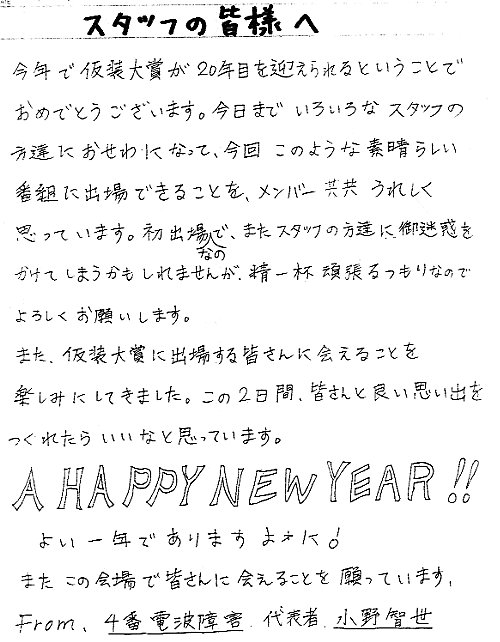 スタッフの皆様へ
今年で仮装大賞が20年目を迎えられるということで
おめでとうございます。今日まで いろいろな スタッフの
方達に おせわになって、今回 このような 素晴らしい
番組に出場できることを、メンバー 共共 うれしく
思っています。初出場なので、またスタッフの方達に御迷惑を
かけてしまうかもしれませんが、精一杯 頑張るつもりなので
よろしくお願いします。
また、仮装大賞に出場する皆さんに会えることを
楽しみにしてきました。この2日間、皆さんと良い思い出を
つくれたら いいなと思っています。
A HAPPY NEW YEAR!!
よい一年でありますように!
また この会場で皆さんに会えることを 願っています。
From、4番 電波障害 代表者 小野智世